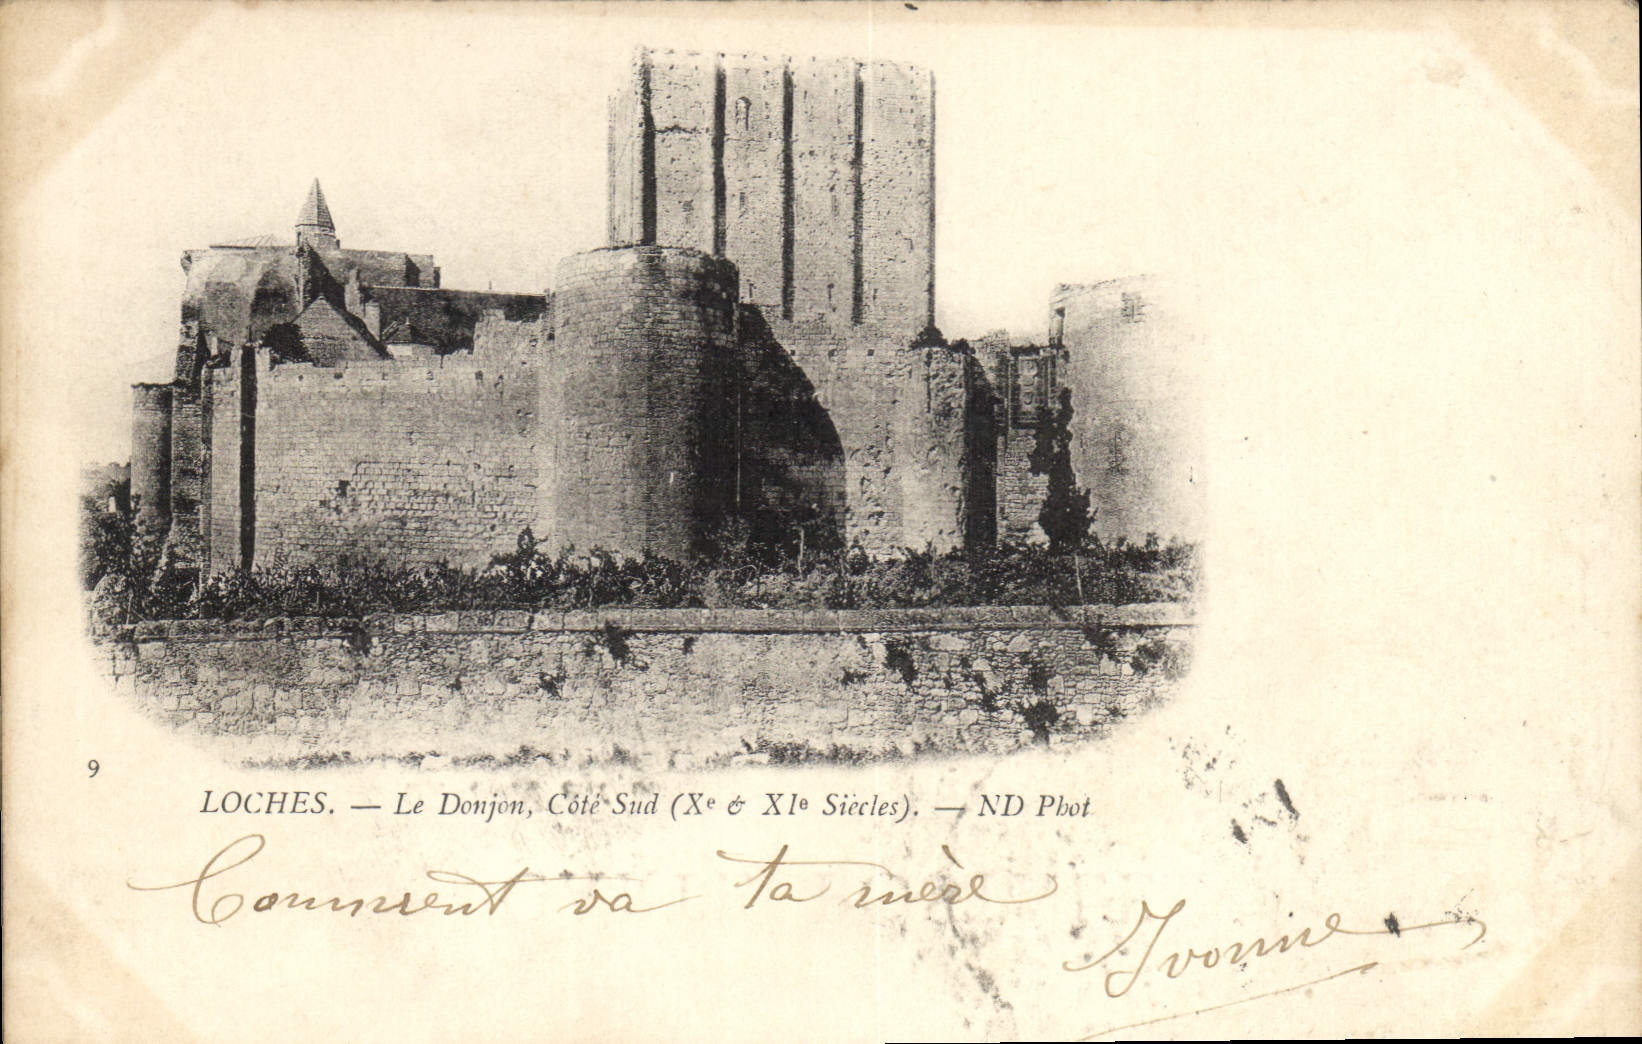 9
LOCHES. — Le Donjon, Côté Sud (Xe & XIe Siècles). — ND Phot
Comment va ta mère
Yvonne